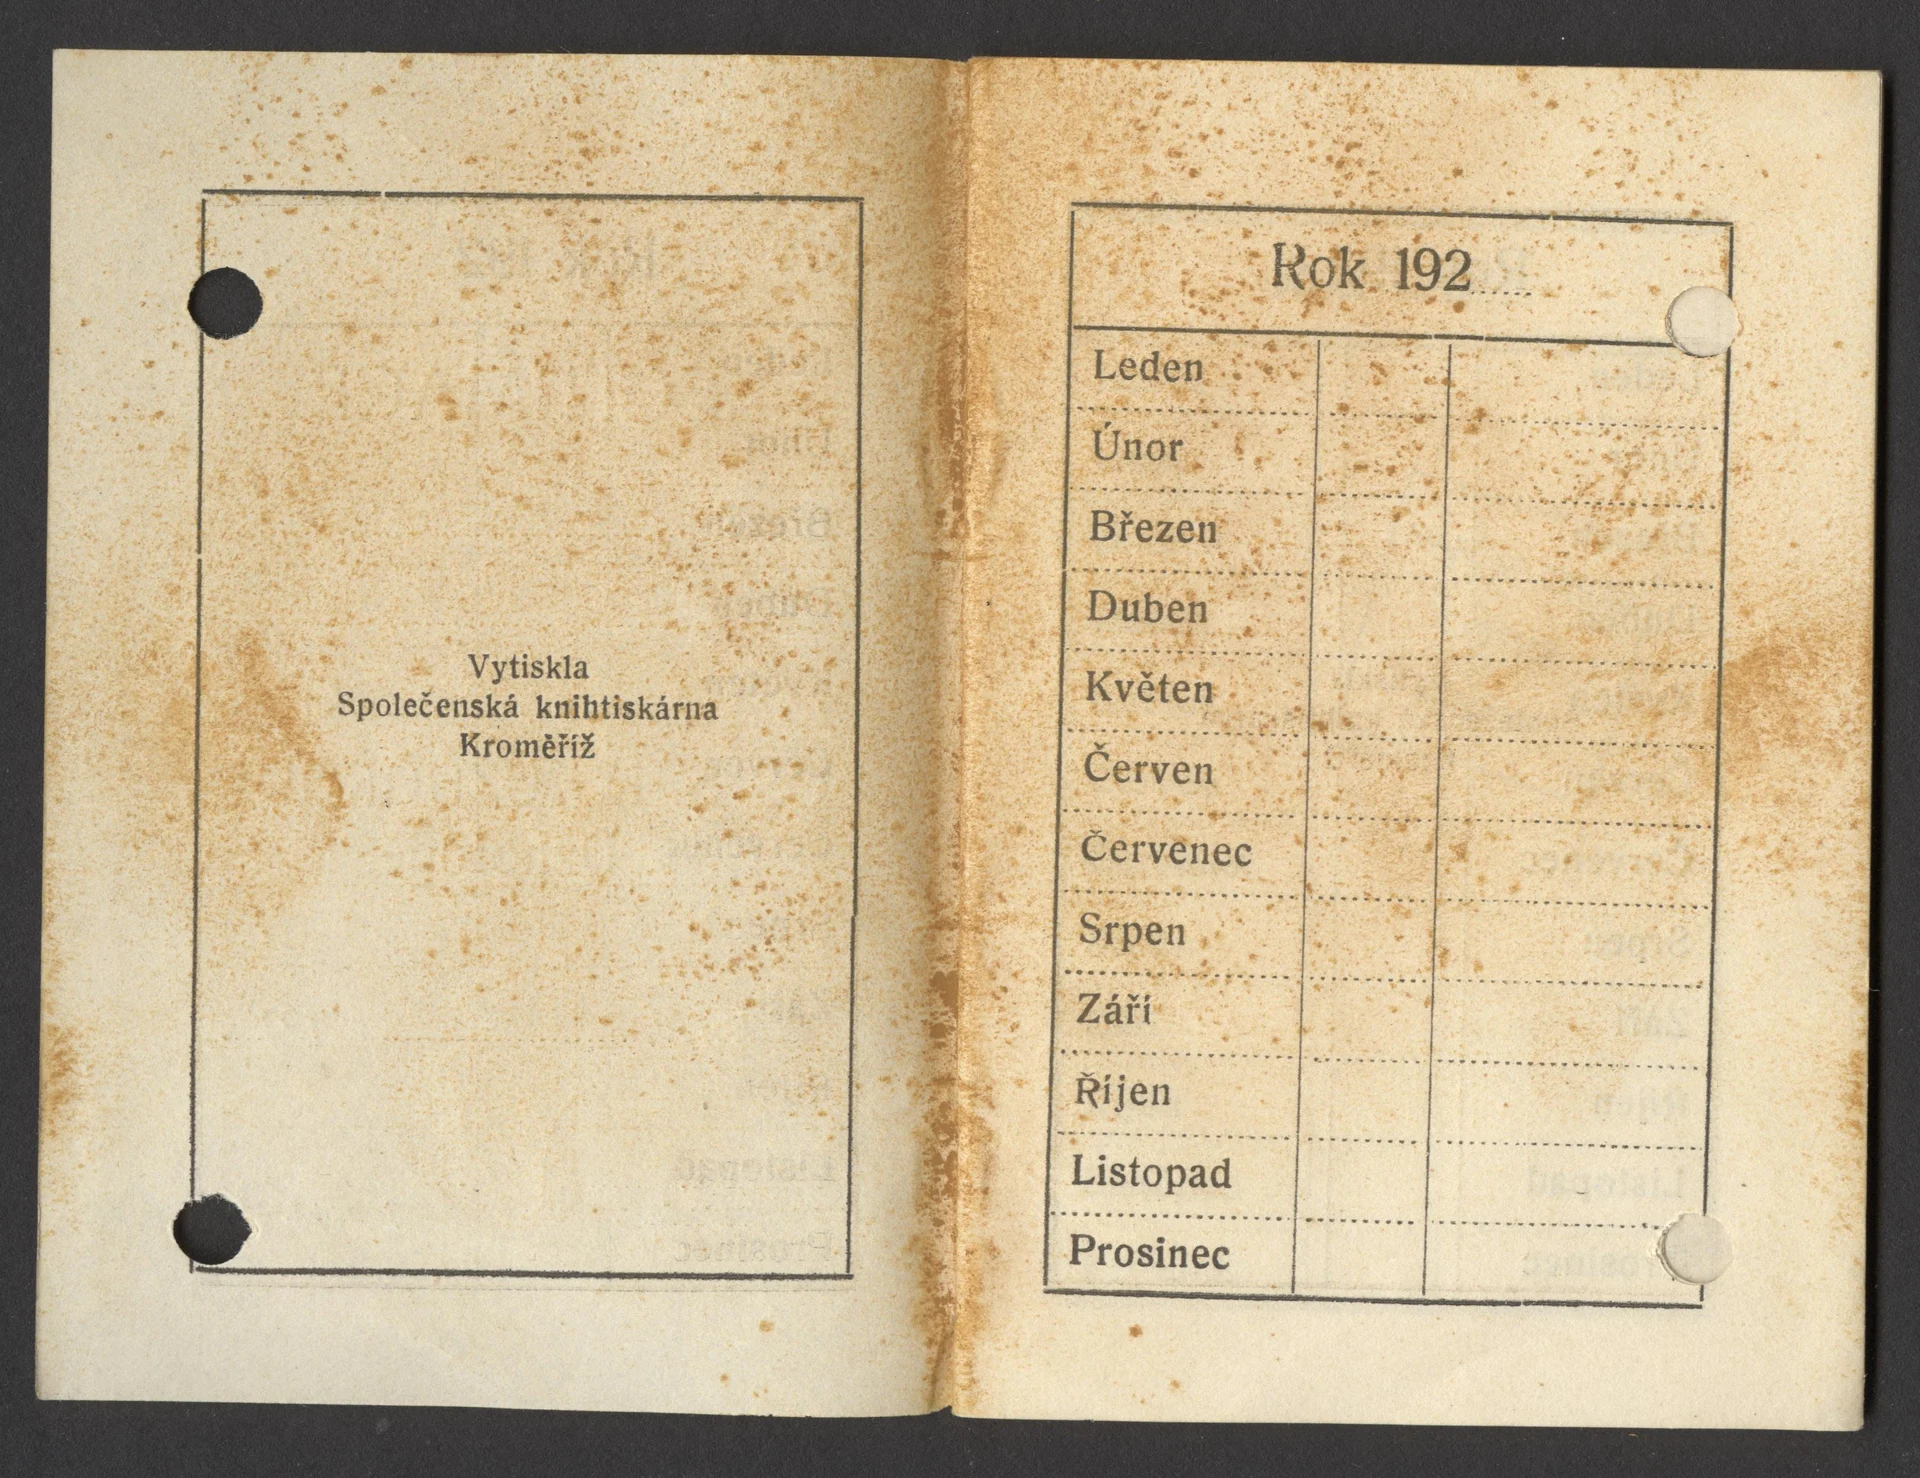 Vytiskla
Společenská knihtiskárna
Kroměříž
Rok 192......
Leden
Únor
Březen
Duben
Květen
Červen
Červenec
Srpen
Září
Říjen
Listopad
Prosinec